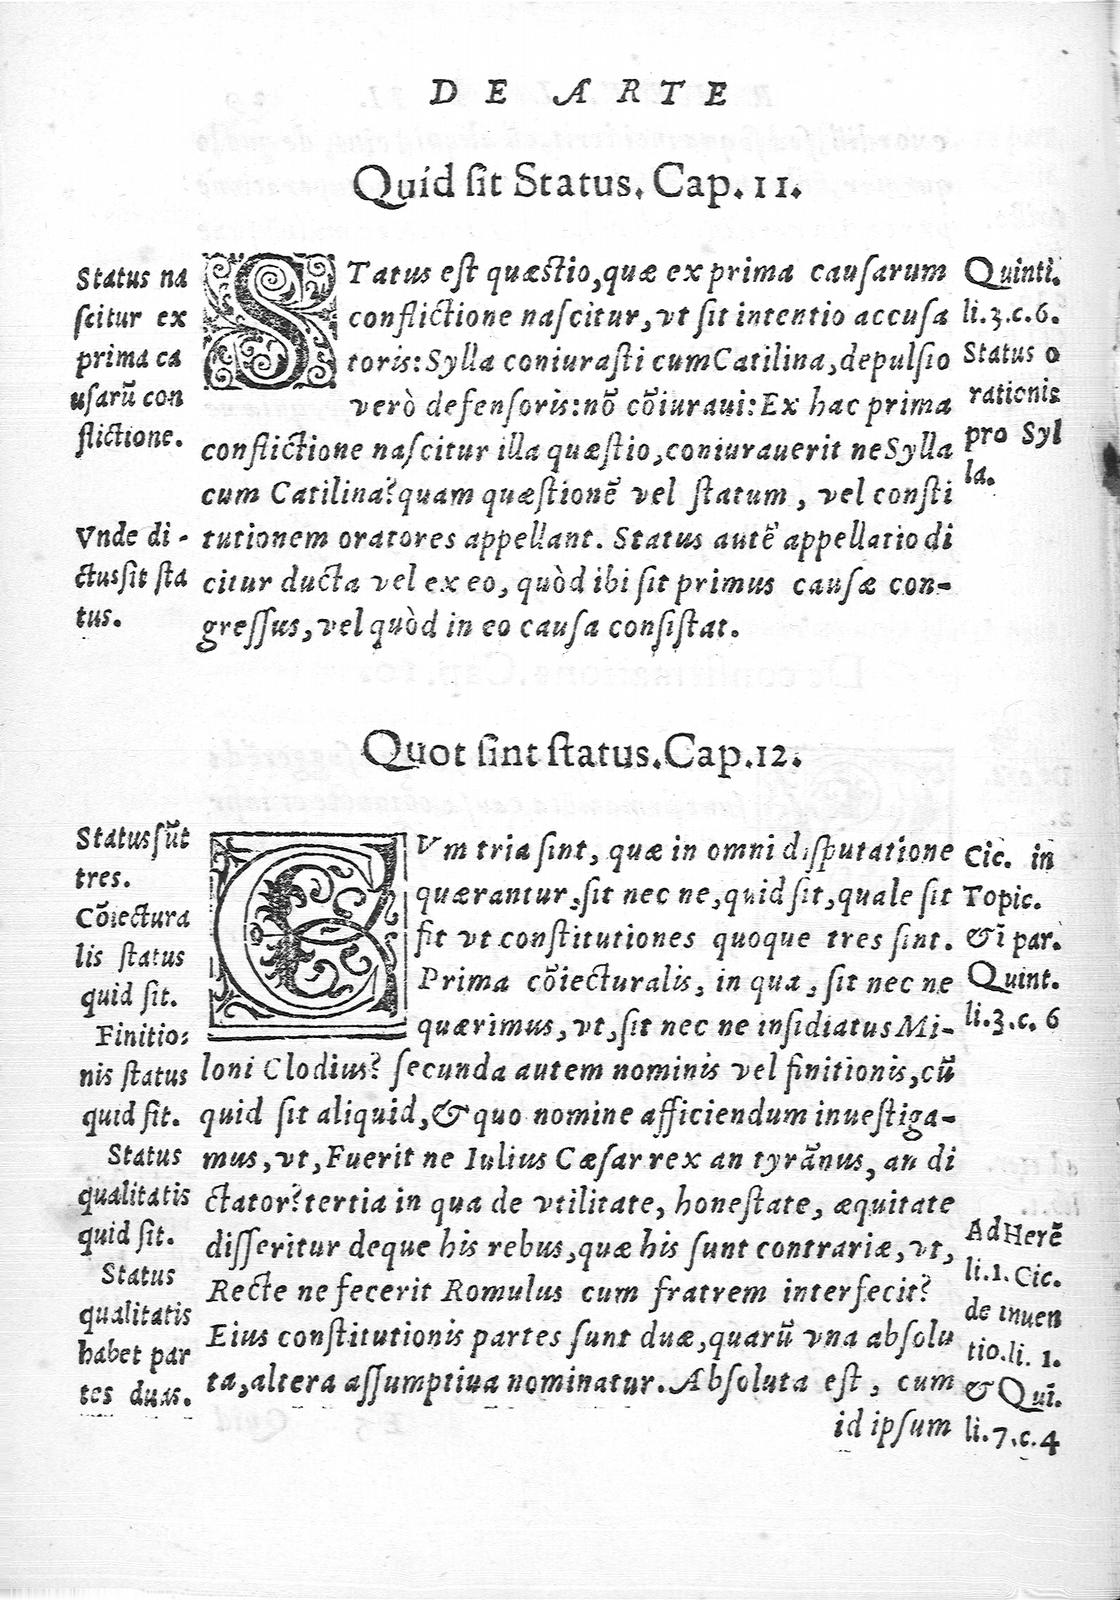 DE ARTE
Quid sit Status. Cap. 11.
Status na
ſcitur ex
prima ca
uſarũ con
flictione.
Vnde di-
ctus sit ſta
tus.
STatus eſt quæſtio, quæ ex prima cauſarum
conflictione naſcitur, vt ſit intentio accuſa
toris: Sylla coniuraſti cum Catilina, depulſio
verò defenſoris: nõ cõiuraui: Ex hac prima
conflictione naſcitur illa quæſtio, coniurauerit ne Sylla
cum Catilina? quam quæſtionẽ vel ſtatum, vel conſti
tutionem oratores appellant. Status autẽ appellatio di
citur ducta vel ex eo, quòd ibi ſit primus cauſæ con-
greſſus, vel quòd in eo cauſa conſiſtat.
Quinti.
li.3.c.6.
Status o
rationis
pro Syl
la.
Quot ſint ſtatus. Cap. 12.
Status ſũt
tres.
Cõiectura
lis ſtatus
quid ſit.
Finitio:
nis ſtatus
quid ſit.
Status
qualitatis
quid ſit.
Status
qualitatis
habet par
tes duas.
CVm tria ſint, quæ in omni diſputatione
quærantur, ſit nec ne, quid ſit, quale ſit
fit vt conſtitutiones quoque tres ſint.
Prima cõiecturalis, in qua, ſit nec ne
quærimus, vt, ſit nec ne inſidiatus Mi-
loni Clodius? ſecunda autem nominis vel finitionis, cũ
quid ſit aliquid, & quo nomine afficiendum inueſtiga-
mus, vt, Fuerit ne Iulius Cæſar rex an tyrãnus, an di
ctator? tertia in qua de vtilitate, honeſtate, æquitate
diſſeritur deque his rebus, quæ his ſunt contrariæ, vt,
Recte ne fecerit Romulus cum fratrem interfecit?
Eius conſtitutionis partes ſunt duæ, quarũ vna abſolu
ta, altera aſſumptiua nominatur. Abſoluta eſt, cum
id ipſum
Cic. in
Topic.
& ĩ par.
Quint.
li.3.c. 6
Ad Herẽ
li.1. Cic.
de inuen
tio.li. 1.
& Quĩ.
li.7.c.4